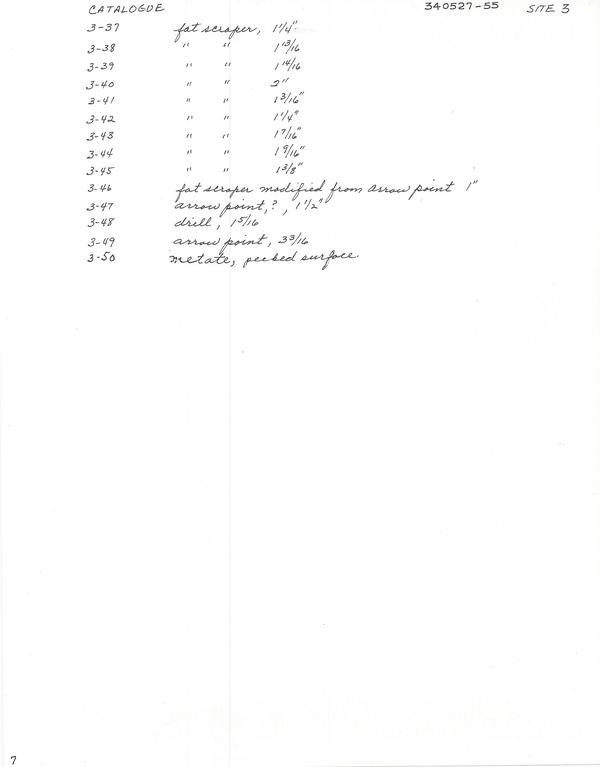 CATALOGUE 340527-55 SITE 3
3-37 fat scraper, 1 1/4"
3-38 " " 1 13/16
3-39 " " 1 14/16
3-40 " " 2"
3-41 " " 1 3/16"
3-42 " " 1 1/4"
3-43 " " 1 7/16"
3-44 " " 1 9/16"
3-45 " " 1 3/8"
3-46 fat scraper modified from arrow point 1"
3-47 arrow point, ?, 1 1/2"
3-48 drill, 1 5/16
3-49 arrow point, 3 3/16
3-50 metate, pecked surface.
7